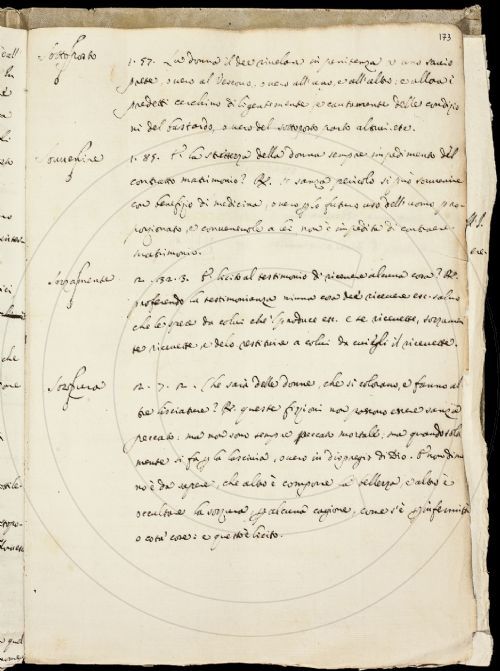 173
Sottoposto
1. 57. La donna il dee rivelare in penitenza a uno savio
prete, overo al Vescovo, overo all'uno, e all'altro: e allora i
predetti cerchino diligentemente, e cautamente delle condizio
ni del bastardo, overo del sottoposto parto altrui. etc.
Sovvenire
1. 85. È la strettezza della donna sempre impedimento del
contratto matrimonio? R. se sanza pericolo si può sovvenire
con benefizio di medicina, overo p lo futuro uso dell'uomo pro
porzionato, e convenevole a lei non è impedita di contraere
matrimonio.
Sozzamente
2. 132. 3. È licito al testimonio di ricevere alcuna cosa? R.
proferendo la testimonianza niuna cosa dee ricevere etc. salvo
che le spese da colui che 'l produce etc. e se ricevette, sozzamen
te ricevette, e delo restituire a colui da cui egli il ricevette.
Sozzura
2. 7. 2. Che sarà delle donne, che si colorano, e fanno al
tre lisciature? R. queste fizioni non possono essere sanza
peccato: ma non sono sempre peccato mortale, ma quando sola
mente si fa p la lascivia, overo in dispregio di Dio. E nondime
no è da sapere, che altro è componere la bellezza, e altro è
occultare la sozzura p alcuna cagione, come s'è p infermità
o cotà cose: e questo è licito.